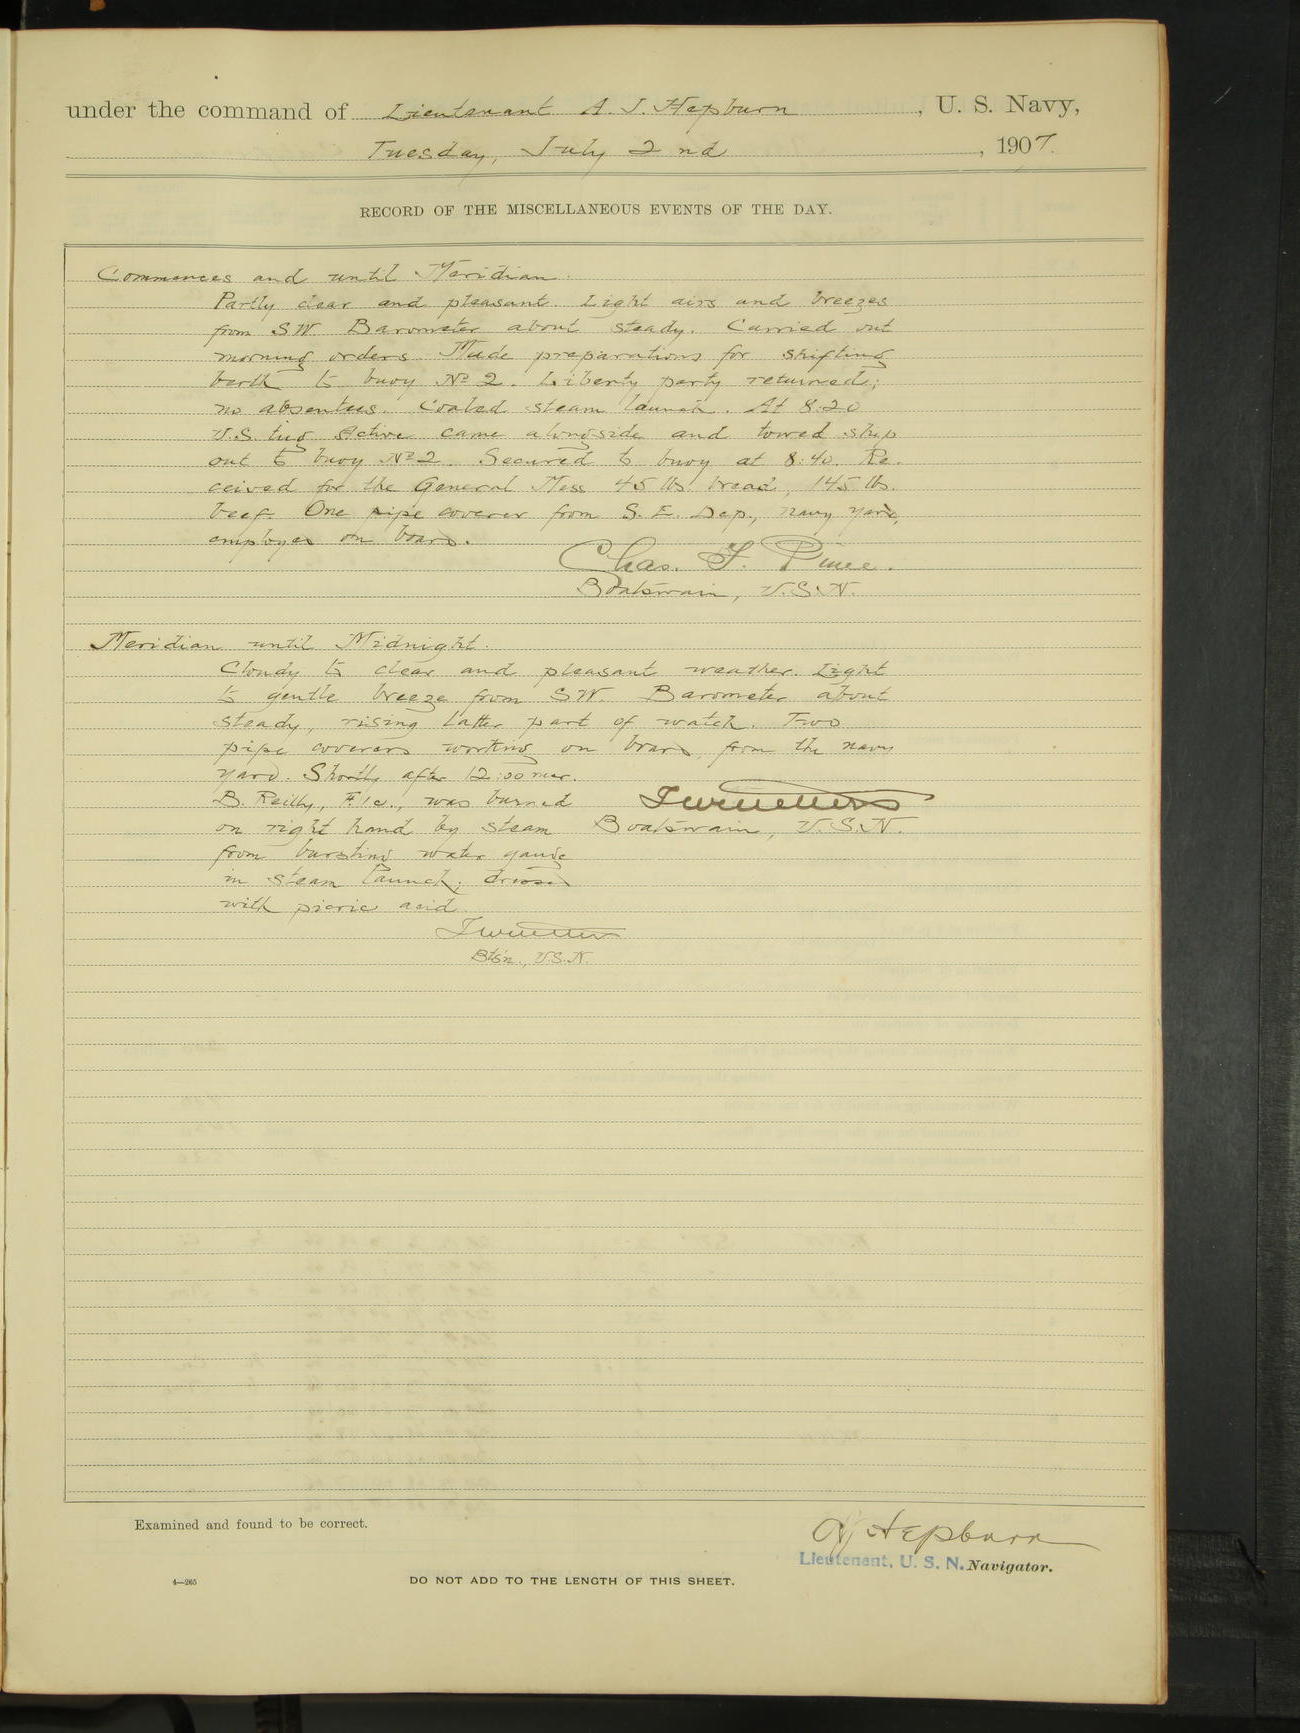 under the command of Lieutenant A. J. Hepburn, U. S. Navy,
Tuesday, July 2nd, 1907.
RECORD OF THE MISCELLANEOUS EVENTS OF THE DAY.
Commences and until Meridian.
Partly clear and pleasant. Light airs and breezes
from SW. Barometer about steady. Carried out
morning orders. Made preparations for shifting
berth to buoy No 2. Liberty party returned;
no absentees. Coaled steam launch. At 8:20
U.S. tug Active came alongside and towed ship
out to buoy No 2. Secured to buoy at 8:40. Re-
ceived for the General Mess 45 lbs. bread, 145 lbs.
beef. One pipe coverer from S. E. Dep., navy yard,
employed on board.
Chas. F. Pierce.
Boatswain, U.S.N.
Meridian until Midnight.
Cloudy to clear and pleasant weather. Light
to gentle breeze from SW. Barometer about
steady, rising latter part of watch. Two
pipe coverers working on board, from the navy
yard. Shortly after 12:00 mer.
B. Reilly, F.1c., was burned
Boatswain, U.S.N.
on right hand by steam
from bursting water gauge
in steam launch; dressed
with picric acid.
Btsn., U.S.N.
Examined and found to be correct.
AJ Hepburn
Lieutenant, U. S. N. Navigator.
4—265
DO NOT ADD TO THE LENGTH OF THIS SHEET.